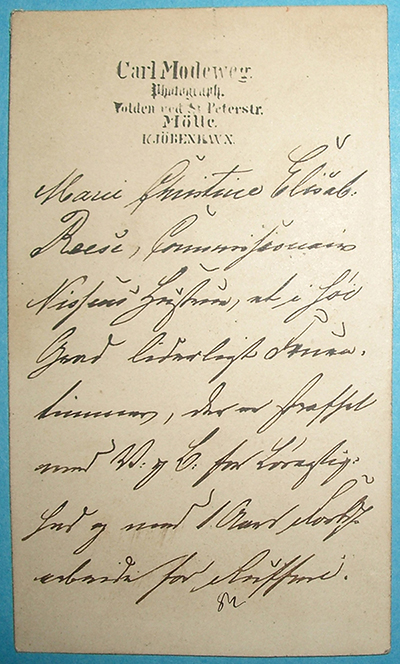 Carl Modeweg.
Photograph.
Volden ved St Peterstr.
Mölle.
KJÖBENHAVN.
Marie Christine Elisab.
Reese, Commissionair
Nissens Hustru, et i høi
Grad liderligt Fruen-
timmer, der er straffet
med V: & B: for Løsagtig-
hed og med 1 Aars
arbeide for Rufferi.